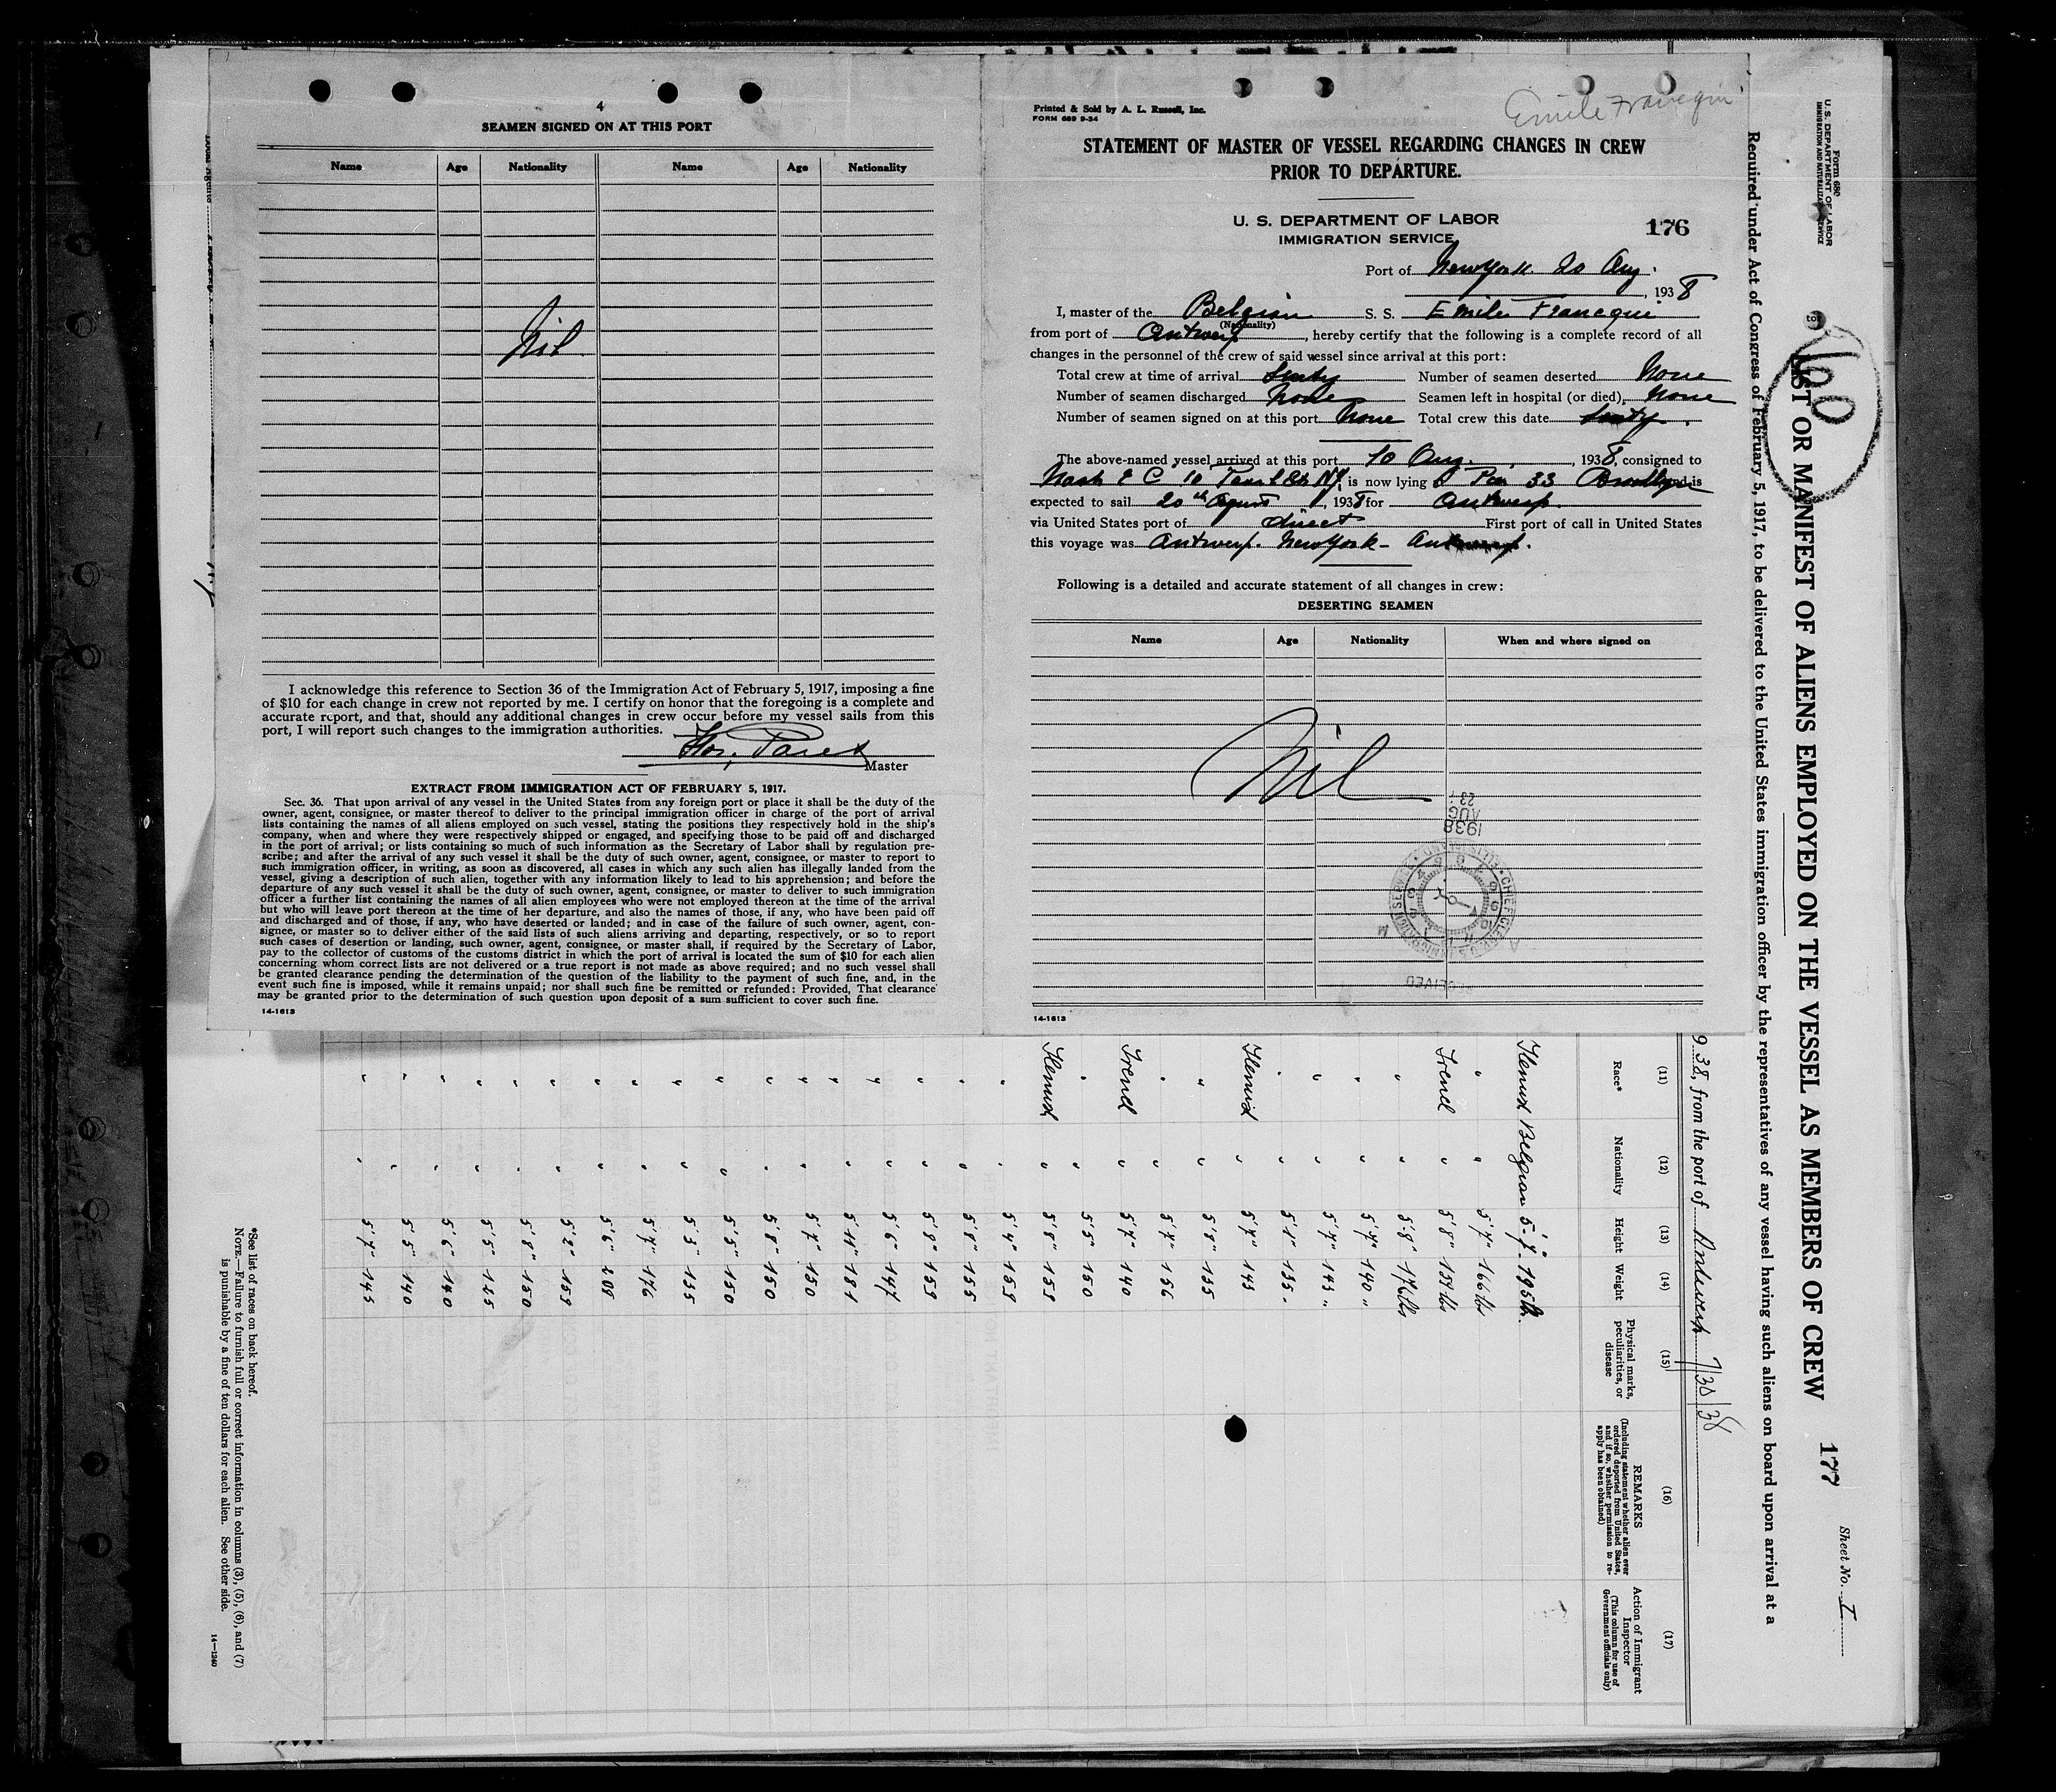 4
SEAMEN SIGNED ON AT THIS PORT
Name Age Nationality Name Age Nationality
Nil
I acknowledge this reference to Section 36 of the Immigration Act of February 5, 1917, imposing a fine
of $10 for each change in crew not reported by me. I certify on honor that the foregoing is a complete and
accurate report, and that, should any additional changes in crew occur before my vessel sails from this
port, I will report such changes to the immigration authorities.
Master
EXTRACT FROM IMMIGRATION ACT OF FEBRUARY 5, 1917.
Sec. 36. That upon arrival of any vessel in the United States from any foreign port or place it shall be the duty of the
owner, agent, consignee, or master thereof to deliver to the principal immigration officer in charge of the port of arrival
lists containing the names of all aliens employed on such vessel, stating the positions they respectively hold in the ship's
company, when and where they were respectively shipped or engaged, and specifying those to be paid off and discharged
in the port of arrival; or lists containing so much of such information as the Secretary of Labor shall by regulation pre-
scribe; and after the arrival of any such vessel it shall be the duty of such owner, agent, consignee, or master to report to
such immigration officer, in writing, as soon as discovered, all cases in which any such alien has illegally landed from the
vessel, giving a description of such alien, together with any information likely to lead to his apprehension; and before the
departure of any such vessel it shall be the duty of such owner, agent, consignee, or master to deliver to such immigration
officer a further list containing the names of all alien employees who were not employed thereon at the time of the arrival
but who will leave port thereon at the time of her departure, and also the names of those, if any, who have been paid off
and discharged and of those, if any, who have deserted or landed; and in case of the failure of such owner, agent, con-
signee, or master so to deliver either of the said lists of such aliens arriving and departing, respectively, or so to report
such cases of desertion or landing, such owner, agent, consignee, or master shall, if required by the Secretary of Labor,
pay to the collector of customs of the customs district in which the port of arrival is located the sum of $10 for each alien
concerning whom correct lists are not delivered or a true report is not made as above required; and no such vessel shall
be granted clearance pending the determination of the question of the liability to the payment of such fine, and, in the
event such fine is imposed, while it remains unpaid; nor shall such fine be remitted or refunded: Provided, That clearance
may be granted prior to the determination of such question upon deposit of a sum sufficient to cover such fine.
14-1613
Printed & Sold by A. L. Russell, Inc.
FORM 689 9-34
Emile Francqui
STATEMENT OF MASTER OF VESSEL REGARDING CHANGES IN CREW
PRIOR TO DEPARTURE.
U. S. DEPARTMENT OF LABOR
IMMIGRATION SERVICE
176
Port of New York 20 Aug.
, 1938
I, master of the Belgian S. S. Emile Francqui
(Nationality)
from port of Antwerp, hereby certify that the following is a complete record of all
changes in the personnel of the crew of said vessel since arrival at this port:
Total crew at time of arrival Sixty Number of seamen deserted None
Number of seamen discharged None Seamen left in hospital (or died), None
Number of seamen signed on at this port None Total crew this date Sixty.
The above-named vessel arrived at this port 10 Aug. , 1938, consigned to
10 NY, is now lying Pier 33 Brooklyn and is
expected to sail 20th August, 1938 for Antwerp.
via United States port of direct First port of call in United States
this voyage was Antwerp. New York - Antwerp.
Following is a detailed and accurate statement of all changes in crew:
DESERTING SEAMEN
Name Age Nationality When and where signed on
Nil
1938 AUG 23
RECEIVED
14-1613
Form 680
U. S. DEPARTMENT OF LABOR
IMMIGRATION AND NATURALIZATION SERVICE
60
LIST OR MANIFEST OF ALIENS EMPLOYED ON THE VESSEL AS MEMBERS OF CREW
177
Sheet No. I
Required under Act of Congress of February 5, 1917, to be delivered to the United States immigration officer by the representatives of any vessel having such aliens on board upon arrival at a
938, from the port of Antwerp 7/30/38
(11) (12) (13) (14) (15) (16) (17)
Race* Nationality Height Weight Physical marks, peculiarities, or disease REMARKS (Including statement whether alien ever ordered deported from United States, and if so, whether permission to re-apply has been obtained) Action of Immigrant Inspector (This column for use of Government officials only)
Flemish Belgian 5'7" 195 lb.
" " 5'7" 166 lbs
French " 5'8" 159 lbs
" " 5'8" 176 lbs
" " 5'7" 140 "
" " 5'7" 145 "
" " 5'1" 135
Flemish " 5'7" 145
" " 5'8" 135
" " 5'7" 156
French " 5'7" 140
" " 5'5" 150
Flemish " 5'8" 155
" " 5'4" 159
" " 5'8" 155
" " 5'8" 159
" " 5'6" 147
" " 5'11" 181
" " 5'7" 150
" " 5'8" 150
" " 5'5" 150
" " 5'3" 135
" " 5'7" 176
" " 5'6" 208
" " 5'2" 159
" " 5'8" 150
" " 5'5" 125
" " 5'6" 140
" " 5'5" 140
" " 5'7" 145
*See list of races on back hereof.
NOTE.—Failure to furnish full or correct information in columns (3), (5), (6), and (7)
is punishable by a fine of ten dollars for each alien. See other side.
14—1240